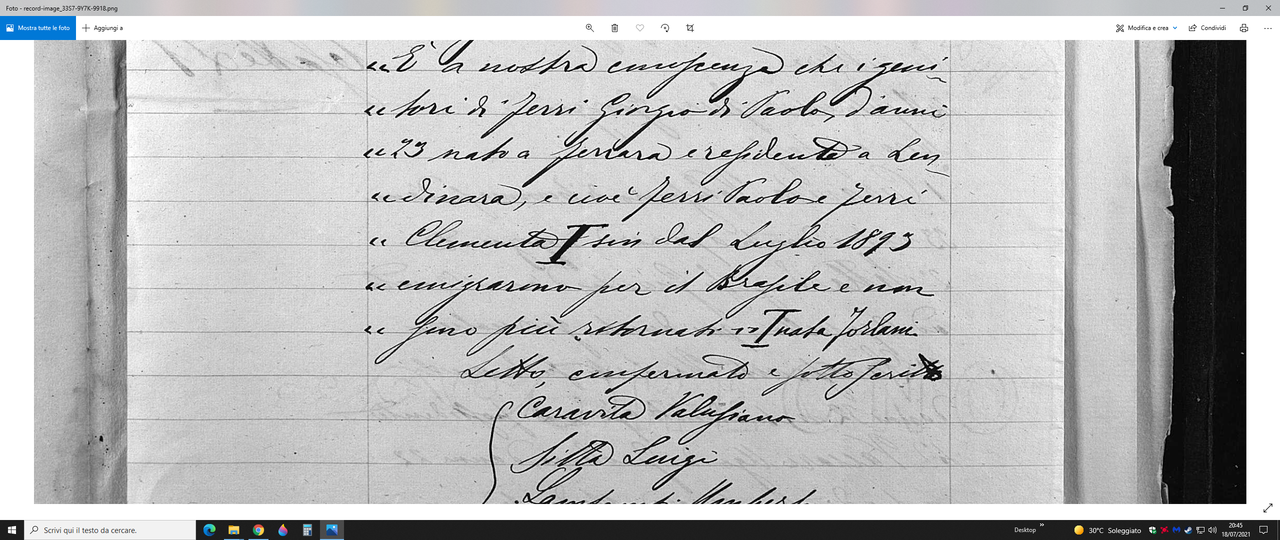 Foto - record-image_33S7-9Y7K-9918.png
Mostra tutte le foto
Aggiungi a
Modifica e crea
Condividi
“ È a nostra conoscenza che i geni-
“ tori di Ferri Giorgio di Paolo, d'anni
“ 23 nato a Ferrara e residente a Len-
“ dinara, e cioè Ferri Paolo e Ferri
“ Clementa I sin dal Luglio 1893
“ emigrarono per il Brasile e non
“ sono più ritornati „ I nata
Letto, confermato e sottoscritto
Caravita Valusiano
Sitta Luigi
Scrivi qui il testo da cercare.
Desktop
»
30°C Soleggiato
20:45
18/07/2021